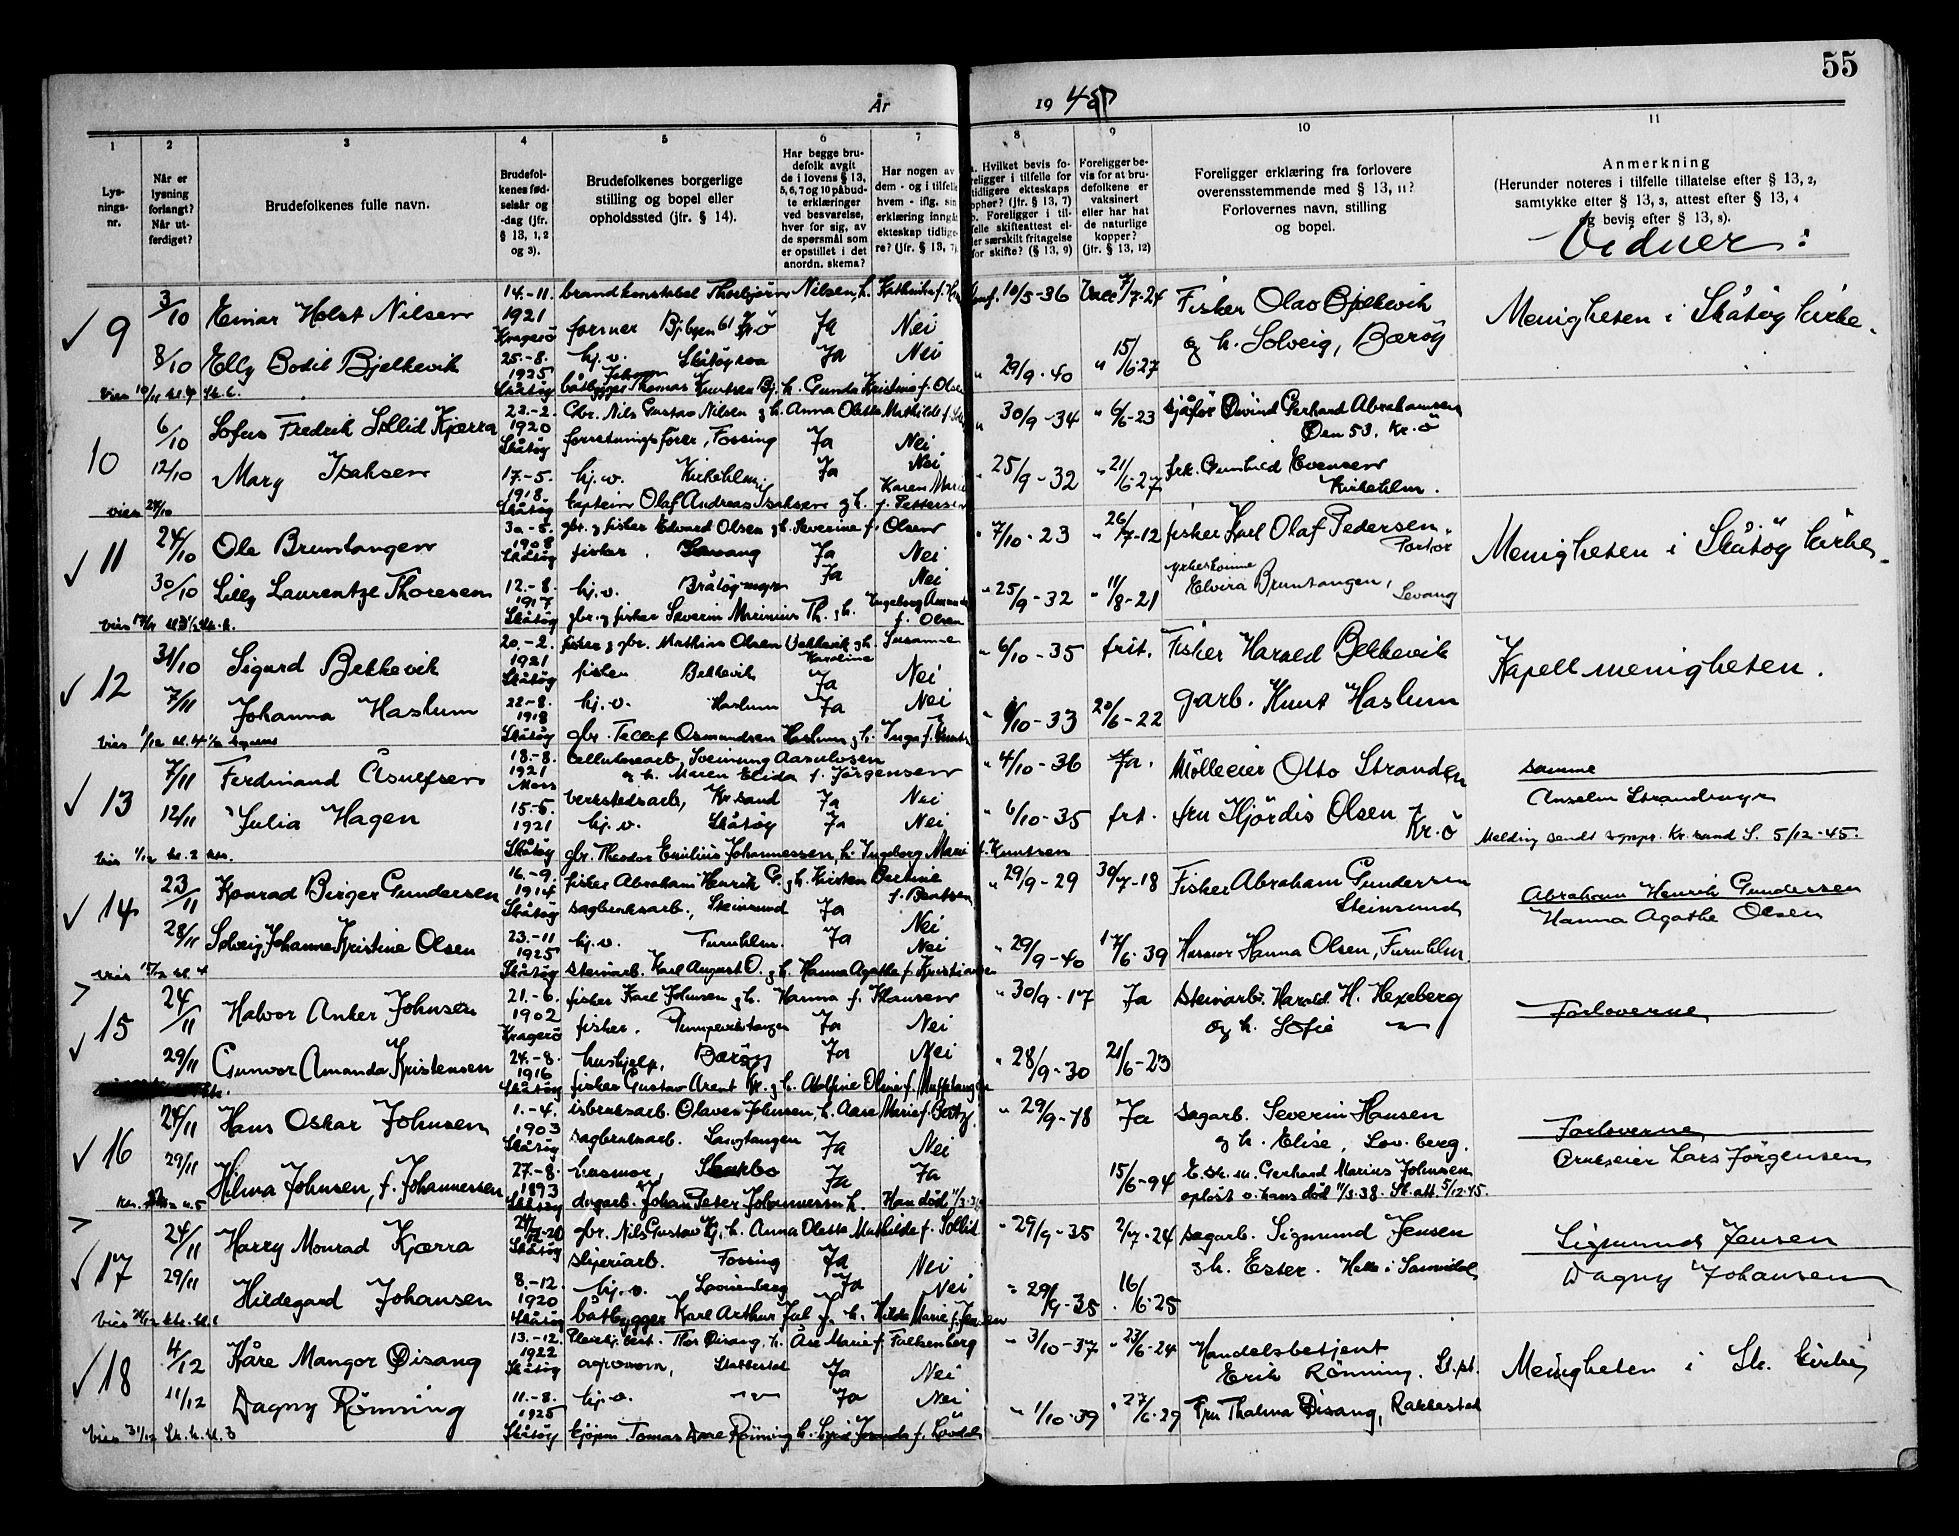 55
År 1945
1 2 3 4 5 6 7 8 9 10 11
Lys-
nings-
nr.
Når er
lysning
forlangt?
Når ut-
ferdiget?
Brudefolkenes fulle navn.
Brudefol-
kenes fød-
selsår og
-dag (jfr.
§ 13, 1, 2
og 3).
Brudefolkenes borgerlige
stilling og bopel eller
opholdssted (jfr. § 14).
Har begge bru-
defolk avgit
de i lovens § 13,
5, 6, 7 og 10 påbud-
te erklæringer
ved besvarelse,
hver for sig, av
de spørsmål som
er opstillet i det
anordn. skema?
Har nogen av
dem - og i tilfelle
hvem - iflg. sin
erklæring inngåt
ekteskap tidlige-
re? (jfr. § 13, 7)
Hvilket bevis fo-
religger i tilfelle for
tidligere ekteskaps
ophør? (jfr. § 13, 7)
b. Foreligger i til-
felle skifteattest el-
ler særskilt fritagelse
for skifte? (§ 13, 9)
Foreligger be-
vis for at bru-
defolkene er
vaksinert
eller har hat
de naturlige
kopper?
(jfr. § 13, 12)
Foreligger erklæring fra forlovere
overensstemmende med § 13, 11?
Forlovernes navn, stilling
og bopel.
Anmerkning
(Herunder noteres i tilfelle tillatelse efter § 13, 2,
samtykke efter § 13, 3, attest efter § 13, 4
og bevis efter § 13, 8).
Vidner:
9 3/10 Einar Holst Nilsen 14.-11. 1921 Kragerø brandkonstabel Thorbjørn Nilsen, h. Kathrine f.
Ja Nei 10/5-36 Vacc 7/7-24 Fisker Olav Bjelkevik
og h. Solveig, Barøy
Menigheten i Skåtøy kirke.
8/10 Elly Bodil Bjelkevik 25.-8. 1925 Skåtøy hj. v. Skåtøyroa Ja Nei " 29/9-40 " 15/6-27
båtbygger Thomas Knutsen Bj. h. Gunda Kristine f. Olsen
10 6/10 Sofus Fredrik Sollid Kjærra 23.-2. 1920 Skåtøy Gbr. Nils Gustav Nilsen g h. Anna Olette Mathilde f.
forretningsfører, Fossing Ja Nei " 30/9-34 " 6/6-23 sjåfør Øivind Gerhard Abrahamsen
Øen 53. Kr.ö
12/10 Mary Isaksen 17.-5. 1918. Skåtøy hj. v. Kirkehlm. Ja Nei " 25/9-32 " 21/6-27 frk. Gunhild Evensen
Kirkehlm.
kaptein Olaf Andreas Isaksen g h. Karen Marie f. Pettersen
vies 24/10
11 24/10 Ole Bruntangen 30.-5. 1908 Skåtøy gbr. g fisker Edvard Olsen g h. Severine f. Olsen
fisker, Levang Ja Nei " 7/10-23 " 26/7-12 fisker Karl Olaf Pedersen.
Portør
Menigheten i Skåtøy kirke.
30/10 Lilly Laurentze Thoresen 12.-8. 1917 Skåtøy hj. v. Bråtøymyr Ja Nei " 25/9-32 " 11/8-21
Elvira Bruntangen, Levang
gbr. g fisker Severin Marinius Th. g h. Ingeborg Amanda f. Olsen
12 31/10 Sigurd Bekkevik 20.-2. 1921 Skåtøy fisker g gbr. Mathias Olsen Bekkevik g h. Susanne Karoline
fisker Bekkevik Ja Nei " 6/10-35 frit. Fisker Harald Bekkevik
Kapellmenigheten.
7/11 Johanna Haslum 22.-8. 1918 Skåtøy hj. v. Haslum Ja Nei " 1/10-33 20/6-22 garb. Knut Haslum
gbr. Tellef Osmundsen Haslum g h. Inga f.
13 7/11 Ferdinand Åsulfsen 18.-8. 1921 Moss Cellulosearb. Sveinung Aasulvsen
g h. Maren Elida f. Jørgensen
verkstedsarb, Kr.sand Ja Nei " 4/10-36 Ja. Mölleeier Otto Stranden
samme
Anselm Strandmyr
12/11 Julia Hagen 15.-5. 1921 Skåtøy hj. v. Skåtøy Ja Nei " 6/10-35 frt. fru Hjördis Olsen Kr.ö
Melding sendt Kr.sand S. 5/12-45.
gbr. Theodor Emilius Johannessen, h. Ingeborg Marie f. Knutsen
14 23/11 Konrad Birger Gundersen 16.-9. 1914 Skåtøy fisker Abraham Henrik G. g h. Kirsten Bertine f. Bentsen
sagbruksarb., Steinsund Ja Nei " 29/9-29 30/7-18 Fisker Abraham Gundersen
Steinsund
Abraham Henrik Gundersen
Hanna Agathe Olsen
28/11 Solveig Johanne Kristine Olsen 23.-11 1925 Skåtøy hj. v. Furuhlm. Ja Nei " 29/9-40 17/6-39 Husmor Hanna Olsen, Furuhlm.
steinarb. Karl August O. g h. Hanna Agathe f. Kristiansen
15 24/11 Halvor Anker Johnsen 21.-6. 1902 Kragerø fisker Karl Johnsen g h. Hanna f. Klausen
fisker, Ja Nei " 30/9-17 Ja Steinarb. Harald H. Hexeberg
og h. Sofie
Forloverne
29/11 Gunvor Amanda Kristensen 24.-8. 1916 Skåtøy hushjelp, Barøy Ja Nei " 28/9-30 21/6-23
fisker Gustav Arent Kr. g h. Adolfine Oline f.
16 24/11 Hans Oskar Johnsen 1.-4. 1903 Skåtøy isbruksarb. Olaves Johnsen, h. Aase Marie f.
sagbruksarb. Langtangen Ja Nei " 29/9-18 Ja sagarb. Severin Hansen
g h. Elise, Lov. berg.
Forloverne
Bruksejer Lars Jörgensen
29/11 Hilma Johnsen, f. Johannessen 27.-8. 1893 Skåtøy husmor, Ja Ja 15/6-94 E. sk. m. Gerhard Marius Johnsen
opløst v. hans död 11/3.38. Sk. att. 5/12.45.
dagarb. Johan Peter Johannessen h. Han död 11/3-38
17 24/11 Harry Monrad Kjærra Skåtøy gbr. Nils Gustav Kj, h. Anna Olette Mathilde f. Sollid
sliperiarb. Fossing Ja Nei " 29/9-35 2/7-24 sagarb. Sigmund Jensen
g h. Ester. Helle i Sannidal
Sigmund Jensen
Dagny Johansen
29/11 Hildegard Johansen 8.-12. 1920 Skåtøy hj. v. Lovisenberg Ja Nei " 29/9-35 16/6-25
båtbygger Karl Arthur Jul J. h. Hilda Marie f. Jensen
18 4/12 Kåre Mangor Øisang 13.-12. 1922 Skåtøy Thor Øisang, h. Åse Marie f. Falkenberg
agronom, Stabbestad Ja Nei " 3/10-37 " 23/6-24 Handelsbetjent
Erik Rönning, St.st.
Menigheten i Sk. kirke
11/12 Dagny Rönning 11.-8. 1925 Skåtøy hj. v. Ja Nei " 1/10-39 " 27/6-29 Fru Thalma Øisang, Rakkestad
vies 31/12 Sk. k. kl. 3 kjøpm. Tomas Rönning h.